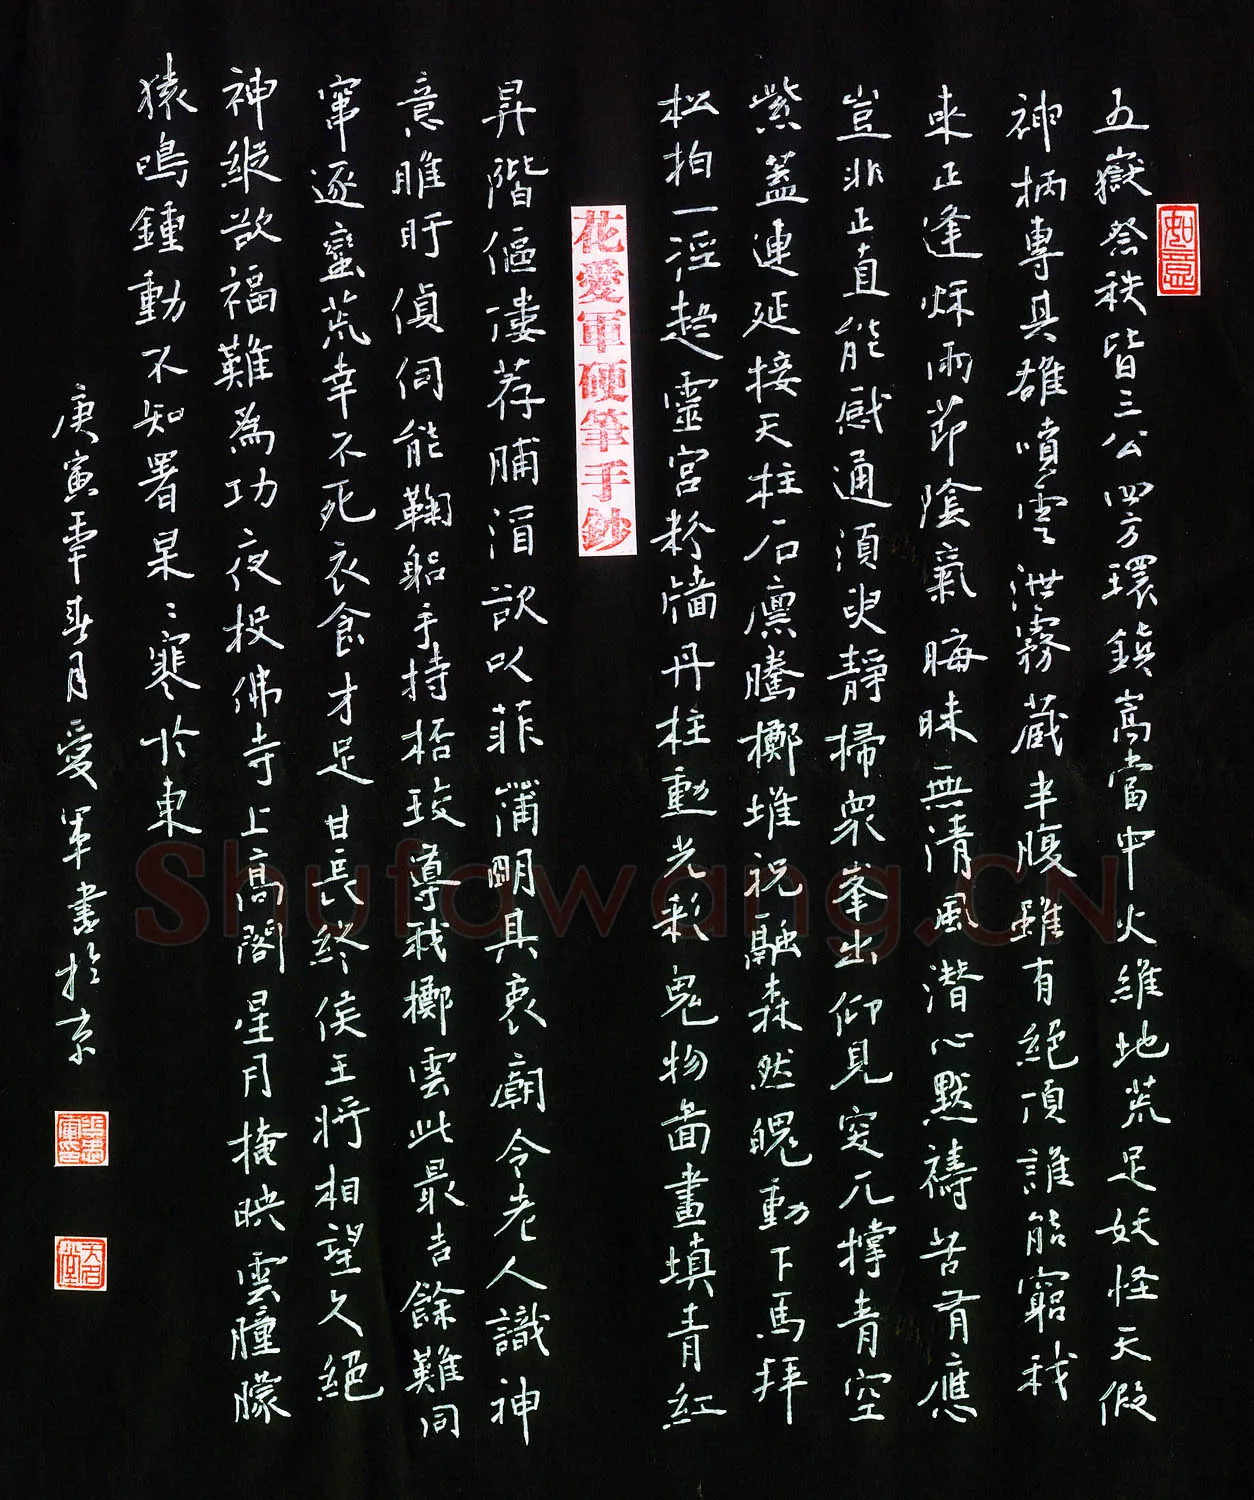 如意
五嶽祭秩皆三公四方環鎮嵩當中火維地荒足妖怪天假
神柄專其雄噴雲泄霧藏半腹雖有絕頂誰能窮我
來正逢秋雨節陰氣晦昧無清風潛心默禱若有應
豈非正直能感通須臾靜掃衆峯出仰見突兀撐青空
紫蓋連延接天柱石廩騰擲堆祝融森然魄動下馬拜
松柏一逕趋靈宮粉牆丹柱動光彩鬼物圖畫填青紅
花愛軍硬筆手鈔
昇階傴僂荐脯酒欲以菲薄明其衷廟令老人識神
意睢盱偵伺能鞠躬手持桮珓導我擲雲此最吉餘難同
竄逐蠻荒幸不死衣食才足甘長終侯王將相望久絕
神縱欲福難為功夜投佛寺上高閣星月掩映雲朣朦
猿鳴鍾動不知署杲〻寒於東
庚寅年春月愛軍書於京
Shufawang.CN